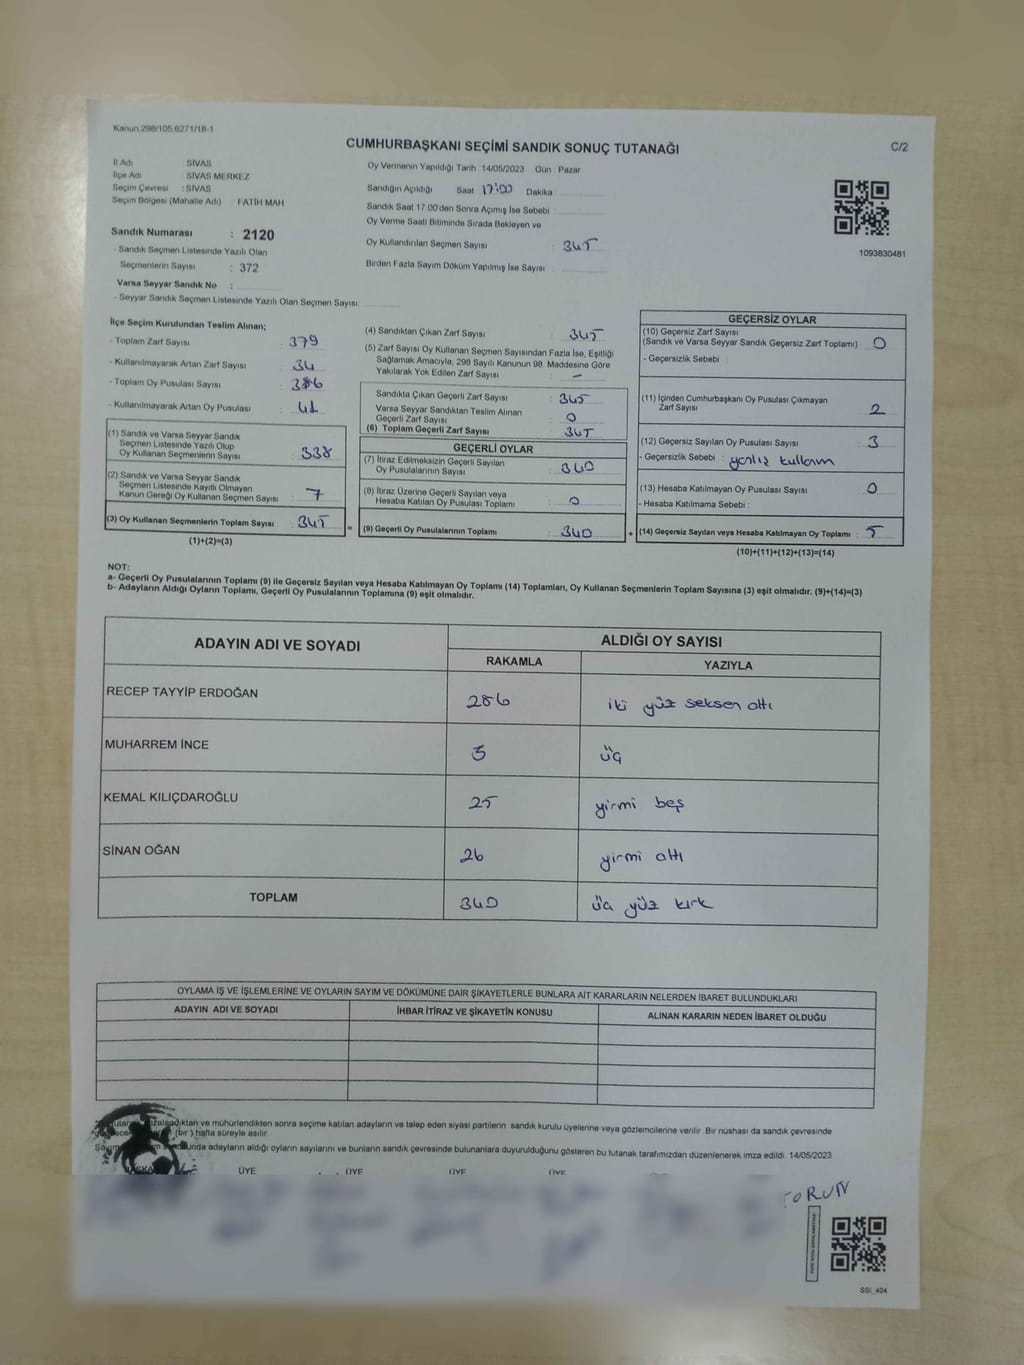 Kanun,298/105 6271/18-1
CUMHURBAŞKANI SEÇİMİ SANDIK SONUÇ TUTANAĞI
C/2
İl Adı SİVAS
İlçe Adı SİVAS MERKEZ
Seçim Çevresi : SİVAS
Seçim Bölgesi (Mahalle Adı) : FATİH MAH
Sandık Numarası : 2120
- Sandık Seçmen Listesinde Yazılı Olan
Seçmenlerin Sayısı : 372
Varsa Seyyar Sandık No :
- Seyyar Sandık Seçmen Listesinde Yazılı Olan Seçmen Sayısı:
Oy Vermenin Yapıldığı Tarih 14/05/2023 Gün Pazar
Sandığın Açıldığı Saat 17:00 Dakika
Sandık Saat 17.00'den Sonra Açımış İse Sebebi :
Oy Verme Saati Bitiminde Sırada Bekleyen ve
Oy Kullandırılan Seçmen Sayısı : 345
Birden Fazla Sayım Döküm Yapılmış İse Sayısı :
1093830481
İlçe Seçim Kurulundan Teslim Alınan;
- Toplam Zarf Sayısı : 379
- Kullanılmayarak Artan Zarf Sayısı : 34
- Toplam Oy Pusulası Sayısı : 386
- Kullanılmayarak Artan Oy Pusulası : 41
(1) Sandık ve Varsa Seyyar Sandık
Seçmen Listesinde Yazılı Olup
Oy Kullanan Seçmenlerin Sayısı : 338
(2) Sandık ve Varsa Seyyar Sandık
Seçmen Listesinde Kayıtlı Olmayan
Kanun Gereği Oy Kullanan Seçmen Sayısı : 7
(3) Oy Kullanan Seçmenlerin Toplam Sayısı : 345
(1)+(2)=(3)
(4) Sandıktan Çıkan Zarf Sayısı : 345
(5) Zarf Sayısı Oy Kullanan Seçmen Sayısından Fazla İse, Eşitliği
Sağlamak Amacıyla, 298 Sayılı Kanunun 98. Maddesine Göre
Yakılarak Yok Edilen Zarf Sayısı : –
Sandıkta Çıkan Geçerli Zarf Sayısı : 345
Varsa Seyyar Sandıktan Teslim Alınan
Geçerli Zarf Sayısı : 0
(6) Toplam Geçerli Zarf Sayısı : 345
GEÇERLİ OYLAR
(7) İtiraz Edilmeksizin Geçerli Sayılan
Oy Pusulalarının Sayısı : 340
(8) İtiraz Üzerine Geçerli Sayılan veya
Hesaba Katılan Oy Pusulası Toplamı : 0
= (9) Geçerli Oy Pusulalarının Toplamı : 340
GEÇERSİZ OYLAR
(10) Geçersiz Zarf Sayısı
(Sandık ve Varsa Seyyar Sandık Geçersiz Zarf Toplamı) : 0
- Geçersizlik Sebebi :
(11) İçinden Cumhurbaşkanı Oy Pusulası Çıkmayan
Zarf Sayısı : 2
(12) Geçersiz Sayılan Oy Pusulası Sayısı : 3
- Geçersizlik Sebebi : yanlış kullanım
(13) Hesaba Katılmayan Oy Pusulası Sayısı : 0
- Hesaba Katılmama Sebebi :
+ (14) Geçersiz Sayılan veya Hesaba Katılmayan Oy Toplamı : 5
(10)+(11)+(12)+(13)=(14)
NOT:
a- Geçerli Oy Pusulalarının Toplamı (9) ile Geçersiz Sayılan veya Hesaba Katılmayan Oy Toplamı (14) Toplamları, Oy Kullanan Seçmenlerin Toplam Sayısına (3) eşit olmalıdır. (9)+(14)=(3)
b- Adayların Aldığı Oyların Toplamı, Geçerli Oy Pusulalarının Toplamına (9) eşit olmalıdır.
ADAYIN ADI VE SOYADI
ALDIĞI OY SAYISI
RAKAMLA
YAZIYLA
RECEP TAYYİP ERDOĞAN 286 iki yüz seksen altı
MUHARREM İNCE 3 üç
KEMAL KILIÇDAROĞLU 25 yirmi beş
SİNAN OĞAN 26 yirmi altı
TOPLAM 340 üç yüz kırk
OYLAMA İŞ VE İŞLEMLERİNE VE OYLARIN SAYIM VE DÖKÜMÜNE DAİR ŞİKAYETLERLE BUNLARA AİT KARARLARIN NELERDEN İBARET BULUNDUKLARI
ADAYIN ADI VE SOYADI
İHBAR İTİRAZ VE ŞİKAYETİN KONUSU
ALINAN KARARIN NEDEN İBARET OLDUĞU
ve mühürlendikten sonra seçime katılan adayların ve talep eden siyasi partilerin sandık kurulu üyelerine veya gözlemcilerine verilir. Bir nüshası da sandık çevresinde
(bir) hafta süreyle asılır.
adayların aldığı oyların sayılarını ve bunların sandık çevresinde bulunanlara duyurulduğunu gösteren bu tutanak tarafımızdan düzenlenerek imza edildi. 14/05/2023
ÜYE ÜYE ÜYE ÜYE
TORUN
SSI_404